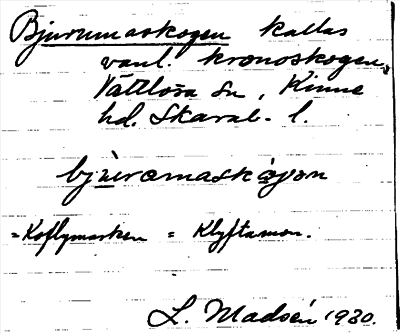 Bjurumaskogen kallas
vanl. kronoskogen,
Vättlösa sn, Kinne
hd. Skarab. l.
bjùramaskògon
=Koflymarken = Klyftamon.
L. Madsén 1930.